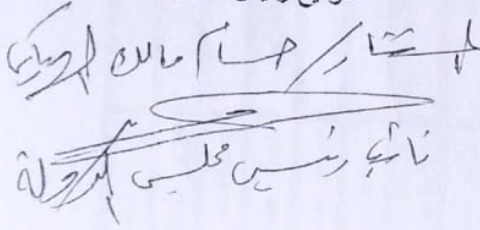 المستشار / حسام مالك
نائب رئيس مجلس الدولة